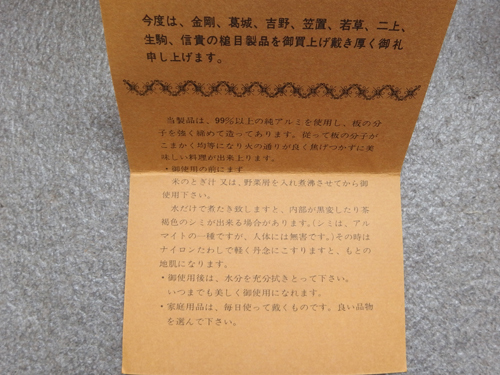 今度は、金剛、葛城、吉野、笠置、若草、二上、
生駒、信貴の槌目製品を御買上げ戴き厚く御礼
申し上げます。
当製品は、99%以上の純アルミを使用し、板の分
子を強く縮めて造ってあります。従って板の分子が
こまかく均等になり火の通りが良く焦げつかずに美
味しい料理が出来上ります。
・御使用の前にまず
米のとぎ汁又は、野菜屑を入れ煮沸させてから御
使用下さい。
水だけで煮たき致しますと、内部が黒変したり茶
褐色のシミが出来る場合があります。(シミは、アル
マイトの一種ですが、人体には無害です。)その時は
ナイロンたわしで軽く丹念にこすりますと、もとの
地肌になります。
・御使用後は、水分を充分拭きとって下さい。
いつまでも美しく御使用になれます。
・家庭用品は、毎日使って戴くものです。良い品物
を選んで下さい。